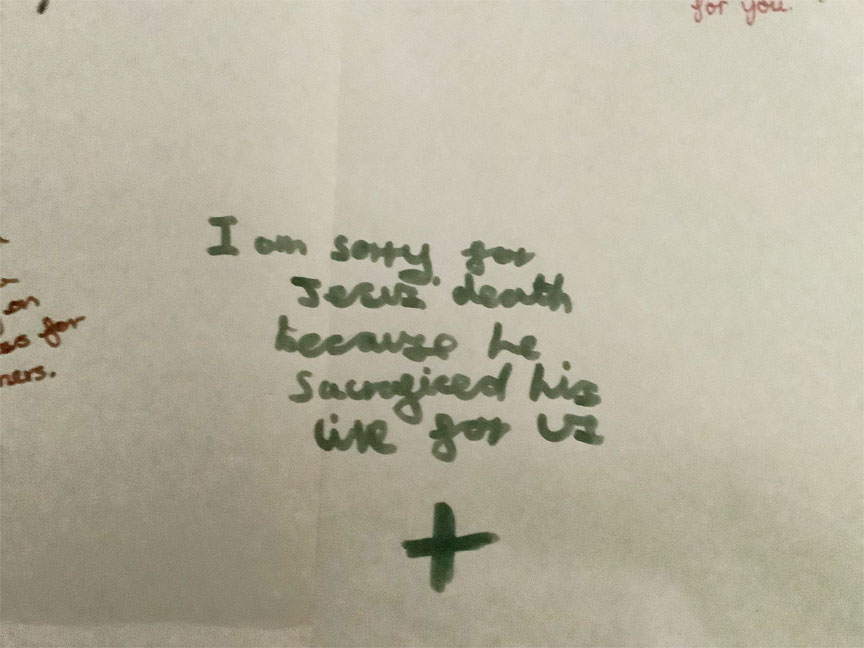 for you.
on
so for
ners.
I am sorry for
Jesus' death
because he
sacrificed his
live for us